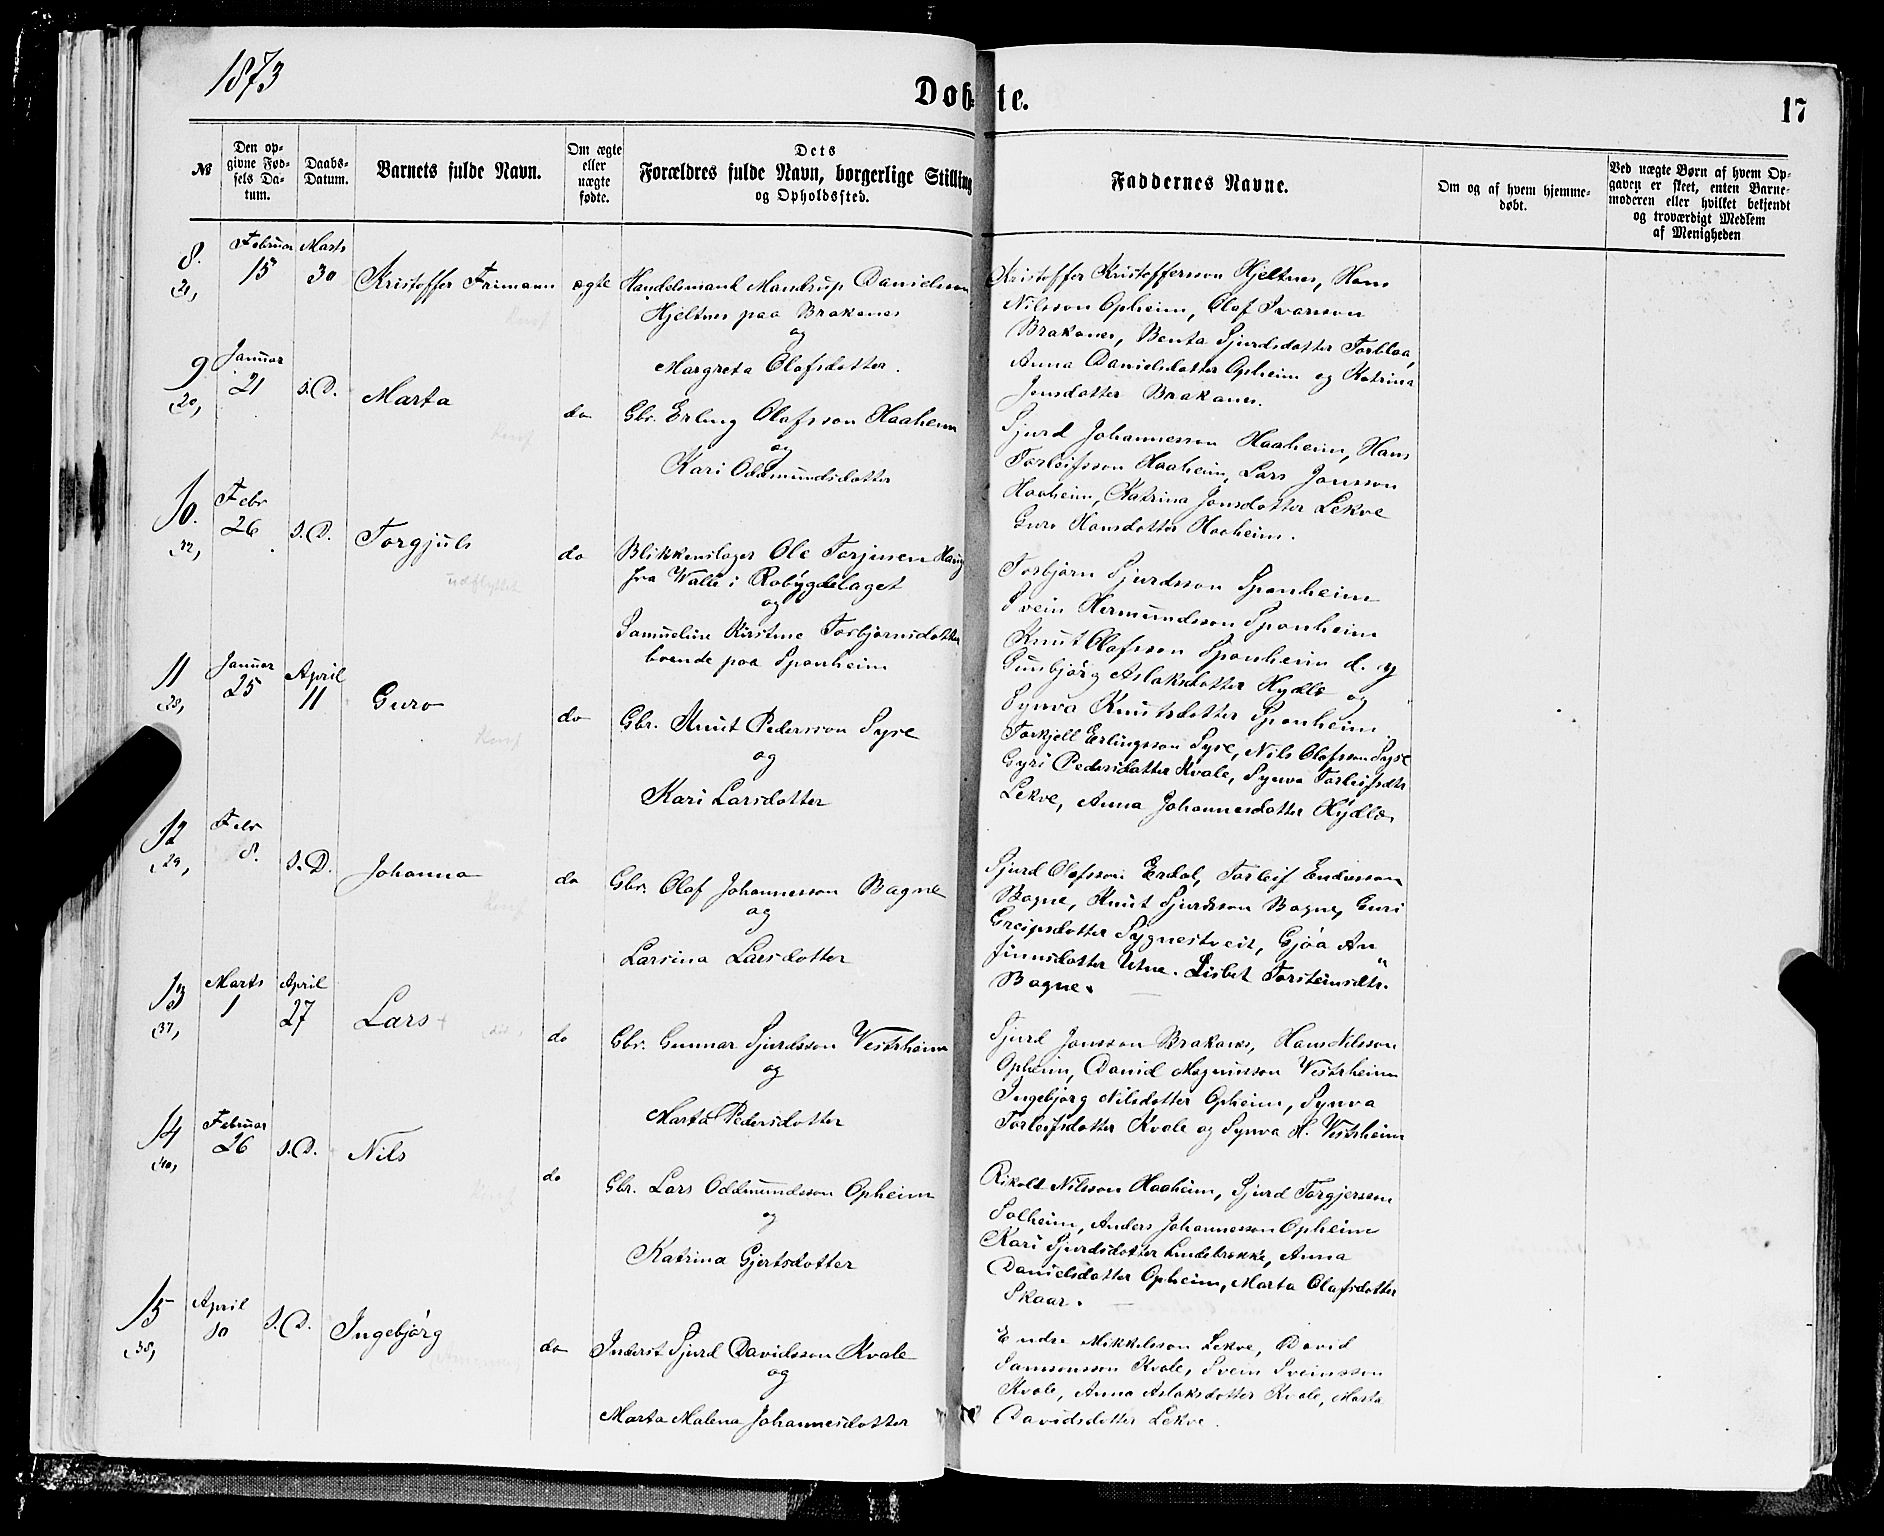 1873
Døbte.
17
№
Den op-
givne Fød-
sels Da-
tum.
Daabs-
Datum.
Barnets fulde Navn.
Om ægte
eller
uægte
fødte.
Dets
Forældres fulde Navn, borgerlige Stilling
og Opholdssted.
Faddernes Navne.
Om og af hvem hjemme-
døbt.
Ved uægte Børn af hvem Op-
gaven er skeet, enten Barne-
moderen eller hvilket bekjendt
og troværdigt Medlem
af Menigheden
8.
Februar
15
Marts
30
Kristoffer Frimann
Konf
ægte
Handelsmand Mandrup Danielsson
Hjeltnes paa Brakanes
og
Margreta Olafsdotter.
Kristoffer Kristoffersson Hjeltnes, Hans
Nilsson Opheim, Olaf Ivarsson
Brakanes, Benta Sjurdsdotter Torbloa,
Anna Danielsdotter Opheim og Katrina
Jonsdotter Brakanes.
9
(20,
Januar
21
s.D.
Marta
Konf
do
Gbr. Erling Olafsson Haaheim
og
Kari Oddmundsdotter
Sjurd Johannesson Haaheim, Hans
Torleifsson Haaheim, Lars Jonsson
Haaheim, Katrina Jonsdotter Lekve
Guro Hansdotter Haaheim.
10.
(32,
Febr
26
s.D.
Torgjuls
udflyttet
do
Blikkenslager Ole Torjusen Haug
fra Valle i Robygdelaget
og
Samueline Kirstine Torbjørnsdotter
boende paa Sponheim
Torbjørn Sjurdsson Sponheim
Svein Hermundsson Sponheim
Knut Olafsson Sponheim d. y
Gunbjørg Aslaksdotter Hydle og
Synva Knutsdotter Sponheim.
11
(28,
Januar
25
April
11
Guro
Konf
do
Gbr. Knut Pedersson Syse
og
Kari Larsdotter
Torkjell Erlingsson Syse, Nils Olafsson Syse
Gyri Pedersdotter Kvale, Synva Torleifsdtr
Lekve, Anna Johannesdotter Hydle.
12
(29,
Febr
8.
s.D.
Johanna
Konf
do
Gbr. Olaf Johannesson Bagne
og
Larsina Larsdotter
Sjurd Olafsson Erdal, Torleif Endresson
Bagne, Knut Sjurdsson Bagne, Guri
Greipsdotter Sygnestveit, Gjøa An"
finnsdotter Utne. Lisbet Torsteinsdtr.
Bagne.
13
(37,
Marts
1
April
27
Lars
do
Gbr. Gunnar Sjurdsson Vestrheim
og
Marta Pedersdotter
Sjurd Jonsson Brakanes, Hans Nilsson
Opheim, David Magnusson Vestrheim
Ingebjørg Nilsdotter Opheim, Synva
Torleifsdotter Kvale og Synva H. Vestrheim
14
(40,
Februar
26
s.D.
Nils
Konf
do
Gbr. Lars Oddmundsson Opheim
og
Katrina Gjertsdotter
Rikolt Nilsson Haaheim, Sjurd Torgjersson
Solheim, Anders Johannesson Opheim
Kari Sjurdsdotter Lindebrekke, Anna
Danielsdotter Opheim, Marta Olafsdotter
Skaar.
15
(38,
April
10
s.D.
Ingebjørg
do
Inderst Sjurd Davidsson Kvale
og
Marta Malena Johannesdotter
Endre Mikkelsson Lekve, David
Samsonsson Kvale, Svein Sveinsson
Kvale, Anna Aslaksdotter Kvale, Marta
Davidsdotter Lekve.